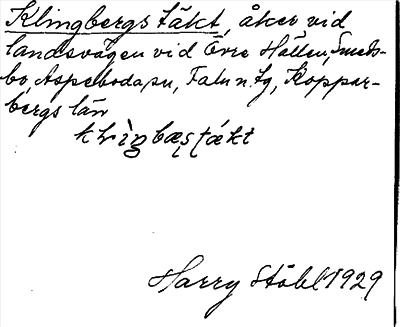 Klingbergs täkt, åker vid
landsvägen vid Övre Hållen, Smeds-
bo, Aspeboda sn, Falu n. tg, Koppar-
bergs län
Harry Ståhl 1929